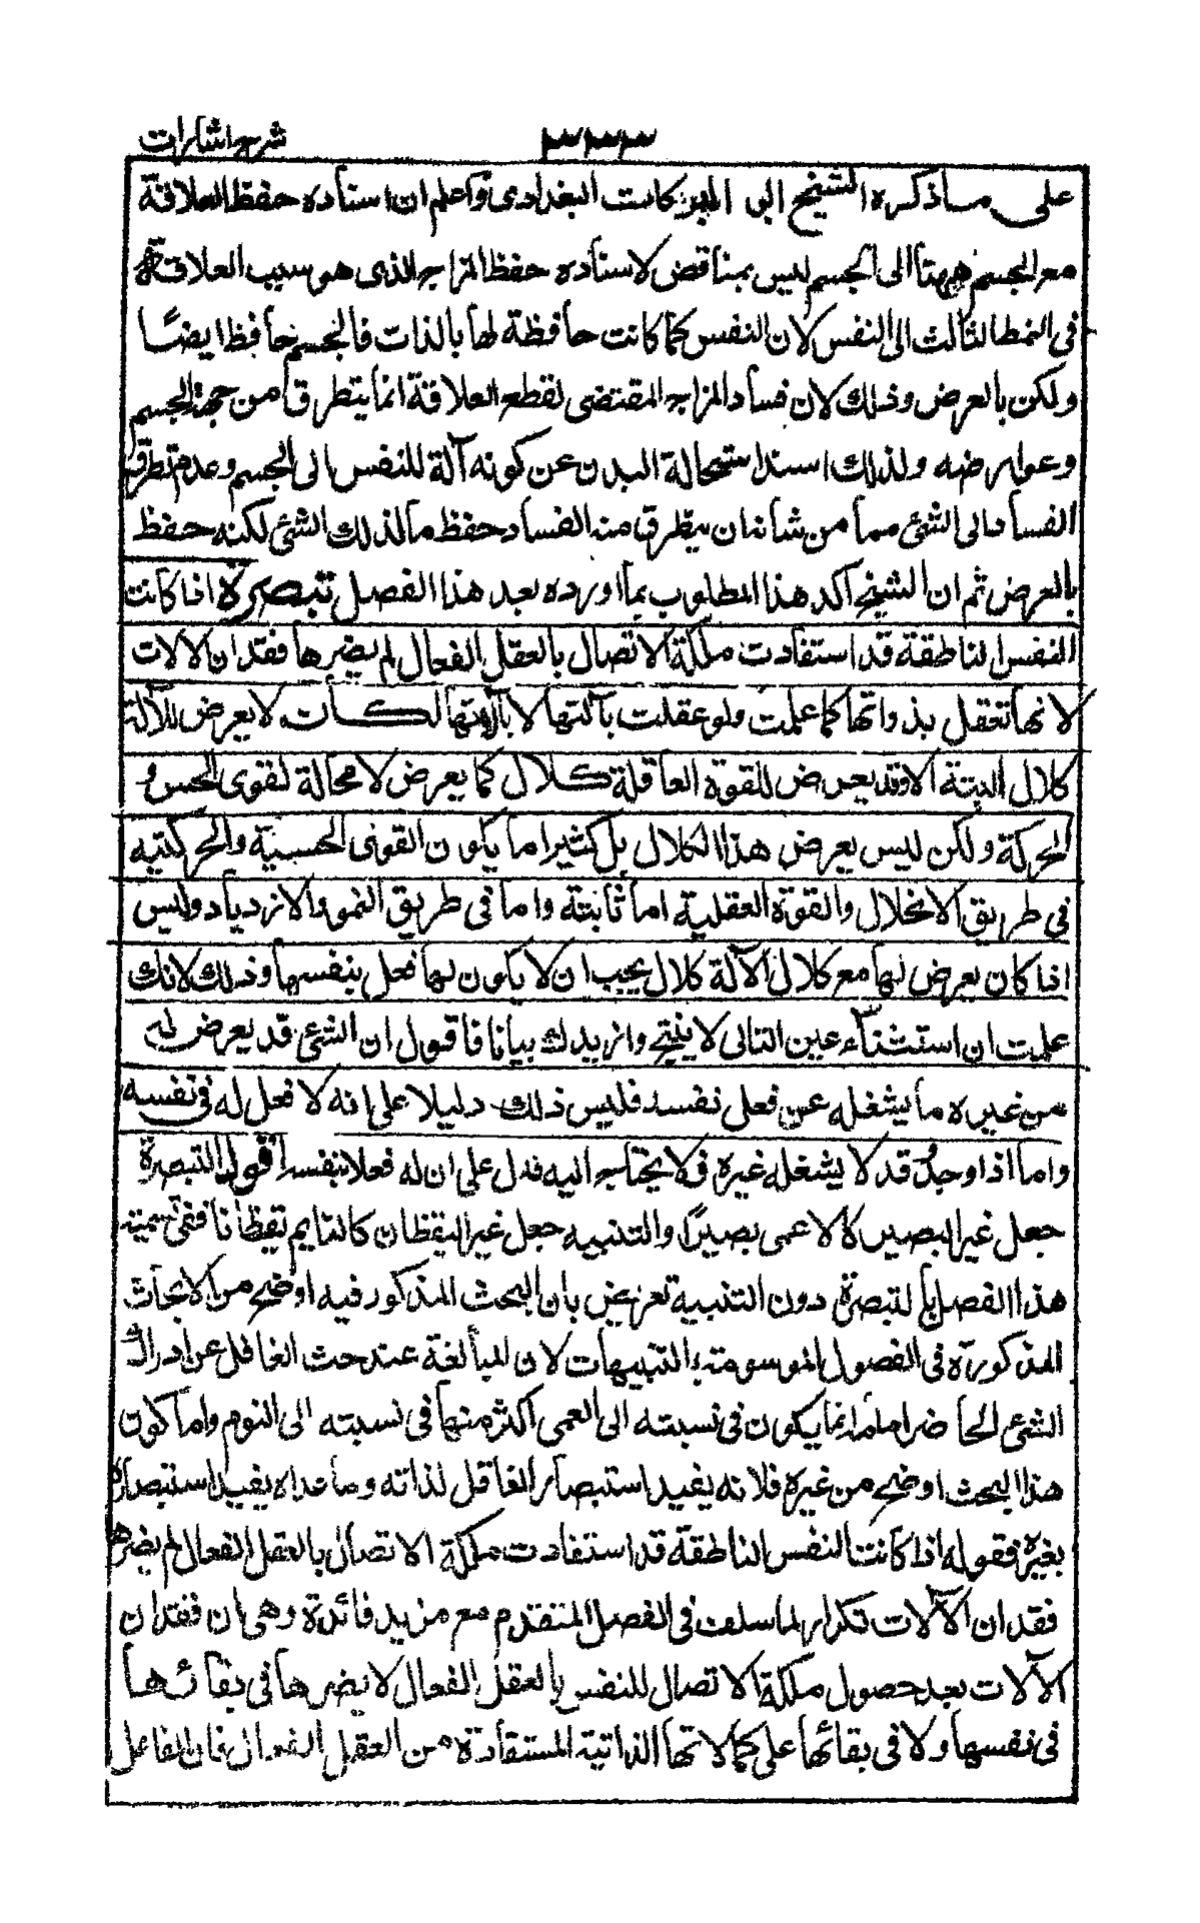 ٣٣٣ شرح اشارات
على ما ذكره الشيخ ابو البركات البغدادى واعلم ان اسناده حفظ العلاقة
مع الجسم ههنا الى الجسم ليس بمناقض لاسناده حفظ المزاج الذى هو سبب العلاقة
فى النمط الثالث الى النفس لان النفس كما كانت حافظة لها بالذات فالجسم حافظ ايضًا
ولكن بالعرض وذلك لان فساد المزاج المقتضى لقطع العلاقة انما يتطرق من جهة الجسم
وعوارضه ولذلك اسند استحالة البدن عن كونه آلة للنفس الى الجسم وعدم تطرق
الفساد الى الشئ مما من شانه ان يتطرق منه الفساد حفظ ما لذلك الشئ لكنه حفظ
بالعرض ثم ان الشيخ اكد هذا المطلوب بما اورده بعد هذا الفصل تبصرة اذا كانت
النفس الناطقة قد استفادت ملكة الاتصال بالعقل الفعال لم يضرها فقدان الالات
لانها تعقل بذواتها كما علمت ولو عقلت بآلتها لا بذاتها لكان لا يعرض للآلة
كلال البتة الا وقد يعرض للقوة العاقلة كلال كما يعرض لا محالة لقوى الحس و
الحركة ولكن ليس يعرض هذا الكلال بل كثيرا ما يكون القوى الحسية والحركتيه
فى طريق الانحلال والقوة العقلية اما ثابتة واما فى طريق النمو والازدياد وليس
اذا كان يعرض لها مع كلال الآلة كلال يجب ان لا يكون لها فعل بنفسها وذلك لانك
علمت ان استثناء عين التالى لا ينتج وازيدك بيانا فاقول ان الشئ قد يعرض له
من غيره ما يشغله عن فعل نفسه فليس ذلك دليلا على انه لا فعل له فى نفسه
واما اذا وجد قد لا يشغله غيره فلا يحتاج اليه فدل على ان له فعلا بنفسه اقول التبصرة
جعل غير البصير كالاعمى بصيرًا والتنبيه جعل غير اليقظان كالنايم يقظانا ففى تسميته
هذا الفصل بالتبصرة دون التنبيه تعريض بان البحث المذكور فيه اوضح من الابحاث
المذكورة فى الفصول الموسومة بالتنبيهات لان المبالغة عند حث الغافل عن ادراك
الشئ الحاضر امامه انما يكون فى نسبته الى العمى اكثر منها فى نسبته الى النوم واما كون
هذا البحث اوضح من غيره فلانه يفيد استبصار الغافل لذاته وما عداه يفيد استبصاره
بغيره فقوله اذا كانت النفس الناطقة قد استفادت ملكة الاتصال بالعقل الفعال لم يضرها
فقدان الآلات تكرار لما سلف فى الفصل المتقدم مع مزيد فائدة وهى ان فقدان
الآلات بعد حصول ملكة الاتصال للنفس بالعقل الفعال لا يضرها فى بقائها
فى نفسها ولا فى بقائها على كمالاتها الذاتية المستفادة من العقل الفعال فان الفاعل